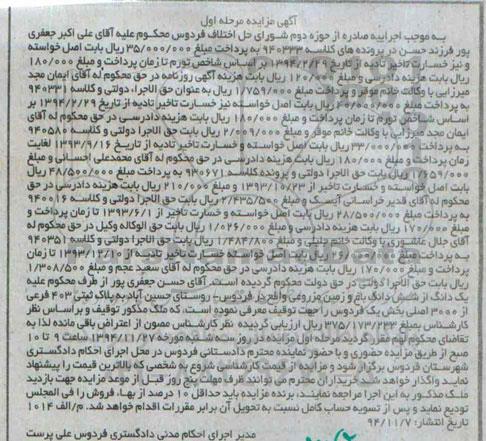 آگهی مزایده مرحله اول
به موجب اجراییه صادره از حوزه دوم شورای حل اختلاف فردوس محکوم علیه آقای علی اکبر جعفری
پور فرزند حسن در پرونده های کلاسه ۹۴۰۳۳۳ به پرداخت مبلغ ۳۵/۰۰۰/۰۰۰ ریال بابت اصل خواسته
و نیز خسارت تاخیر تادیه از تاریخ ۱۳۹۴/۲/۲۹ بر اساس شاخص تورم تا زمان پرداخت و مبلغ ۱۸۰/۰۰۰
ریال بابت هزینه دادرسی و مبلغ ۱۲۰/۰۰۰ ریال بابت هزینه آگهی روزنامه در حق محکوم له آقای ایمان مجد
میرزایی با وکالت خانم موقر و پرداخت مبلغ ۱/۷۵۹/۰۰۰ ریال به عنوان حق الاجرا، دولتی و کلاسه ۹۴۰۳۳۱
به پرداخت مبلغ ۴۰/۰۰۰/۰۰۰ ریال بابت اصل خواسته نیز خسارت تاخیر تادیه از تاریخ ۱۳۹۴/۲/۲۹ بر
اساس شاخص تورم تا زمان پرداخت و مبلغ ۱۸۰/۰۰۰ ریال بابت هزینه دادرسی در حق محکوم له آقای
ایمان مجد میرزایی با وکالت خانم موقر و مبلغ ۲/۰۰۹/۰۰۰ ریال بابت حق الاجرا دولتی و کلاسه ۹۴۰۵۸۰
به پرداخت ۳۳/۰۰۰/۰۰۰ ریال بابت اصل خواسته و خسارت تاخیر تادیه از تاریخ ۱۳۹۳/۹/۱۶ لغایت
زمان پرداخت و مبلغ ۱۸۰/۰۰۰ ریال بابت هزینه دادرسی در حق محکوم له آقای محمدعلی احسانی و مبلغ
۱/۶۵۹/۰۰۰ ریال بابت حق الاجرا دولتی و پرونده کلاسه ۹۳۰۶۷۱ به پرداخت مبلغ ۴۸/۵۰۰/۰۰۰ ریال
بابت اصل خواسته و خسارت تاخیر از ۱۳۹۳/۱۰/۲۳ و مبلغ ۲۱۰/۰۰۰ ریال بابت هزینه دادرسی در حق
محکوم له آقای قدیر خراسانی آیسک و مبلغ ۲/۴۳۵/۵۰۰ ریال بابت حق الاجرا دولتی و کلاسه ۹۴۰۰۱۶
به پرداخت مبلغ ۲۸/۵۰۰/۰۰۰ ریال بابت اصل خواسته و خسارت تاخیر از ۱۳۹۳/۶/۱ تا زمان پرداخت و
مبلغ ۱۷۰/۰۰۰ ریال بابت هزینه دادرسی و مبلغ ۱/۰۲۶/۰۰۰ ریال بابت حق الوکاله وکیل در حق محکوم له
آقای جلال عاشوری با وکالت خانم جلیلی و مبلغ ۱/۴۸۴/۸۰۰ ریال بابت حق الاجرا دولتی و کلاسه ۹۴۰۳۵۱
به پرداخت مبلغ ریال بابت اصل خواسته خسارت تاخیر تادیه از ۱۳۹۳/۱۲/۱۰ تا زمان
پرداخت و مبلغ ۱۷۰/۰۰۰ ریال بابت هزینه دادرسی در حق محکوم له آقای سعید عجم و مبلغ ۱/۳۰۸/۵۰۰
ریال بابت حق الاجرا دولتی در حق دولت محکوم گردیده است. آقای حسن جعفری پور از طرف محکوم علیه
یک دانگ از شش دانگ باغ و زمین مزروعی واقع در فردوس - روستای حسین آباد به پلاک ثبتی ۴۰۳ فرعی
از ۳۰۰۰ اصلی بخش یک فردوس را جهت توقیف معرفی نموده است، که ملک مذکور توقیف و بر اساس نظر
کارشناس بمبلغ ۳۷۵/۱۷۳/۲۳۳ ریال ارزیابی گردیده نظر کارشناس مصون از اعتراض باقی مانده لذا به
تقاضای محکوم لهم مقرر گردید مرحله اول مزایده در روز سه شنبه مورخه ۱۳۹۴/۱۱/۲۷ ساعت ۹ تا ۱۰
صبح از طریق مزایده حضوری و با حضور نماینده محترم دادستانی فردوس در محل اجرای احکام دادگستری
شهرستان فردوس برگزار شود و مزایده از قیمت کارشناسی شروع به شخصی که بالاترین قیمت را پیشنهاد
نماید واگذار خواهد شد خریداران محترم می توانند ظرف مهلت پنج روز قبل از موعد مزایده جهت بازدید
ملک مذکور به این اجرا مراجعه نمایند، برنده مزایده باید حداقل ۱۰ درصد از بهاء فروش را فی المجلس
تودیع نماید و پس از تسویه حساب کامل نسبت به تحویل آن برابر مقررات اقدام خواهد شد. م/الف ۱۰۱۴
تاریخ انتشار: ۹۴/۱۱/۷
مدیر اجرای احکام مدنی دادگستری فردوس علی پرست